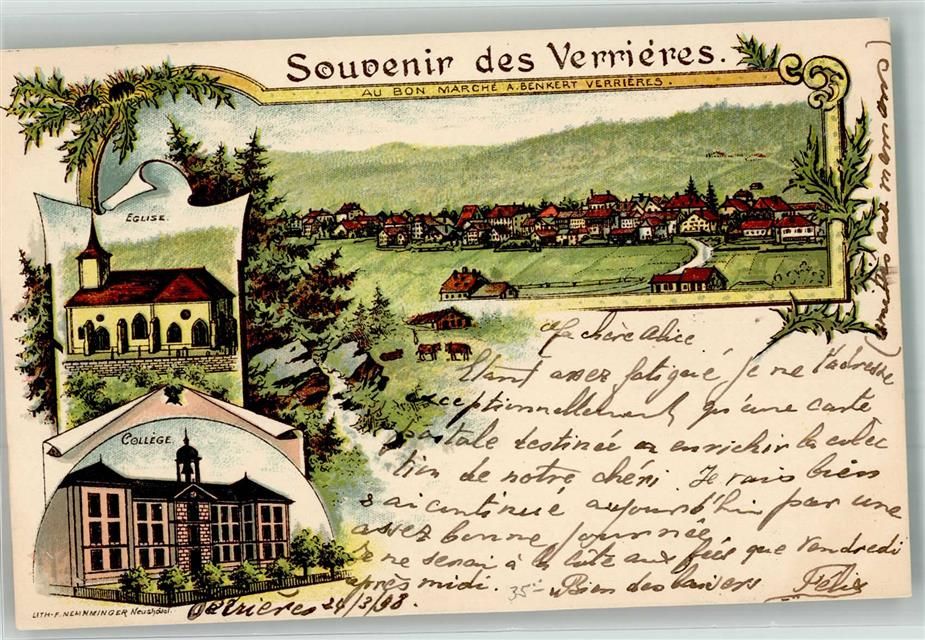 Souvenir des Verriéres.
AU BON MARCHÉ A. BENKERT VERRIÈRES.
EGLISE.
COLLÈGE.
Ma chère Alice
Etant assez fatigué, je ne t'adresse
exceptionnellement qu'une carte
postale destinée a enrichir la colec
tion de notre chéri. Je vais bien
& ai continué aujourd'hui par une
assez bonne journée
Je ne serai à la aux fées que vendredi
après midi. 35.- Bien des baisers Felix
Verrières 24/3/98
LITH-F. NEMNMINGER Neuchâtel.